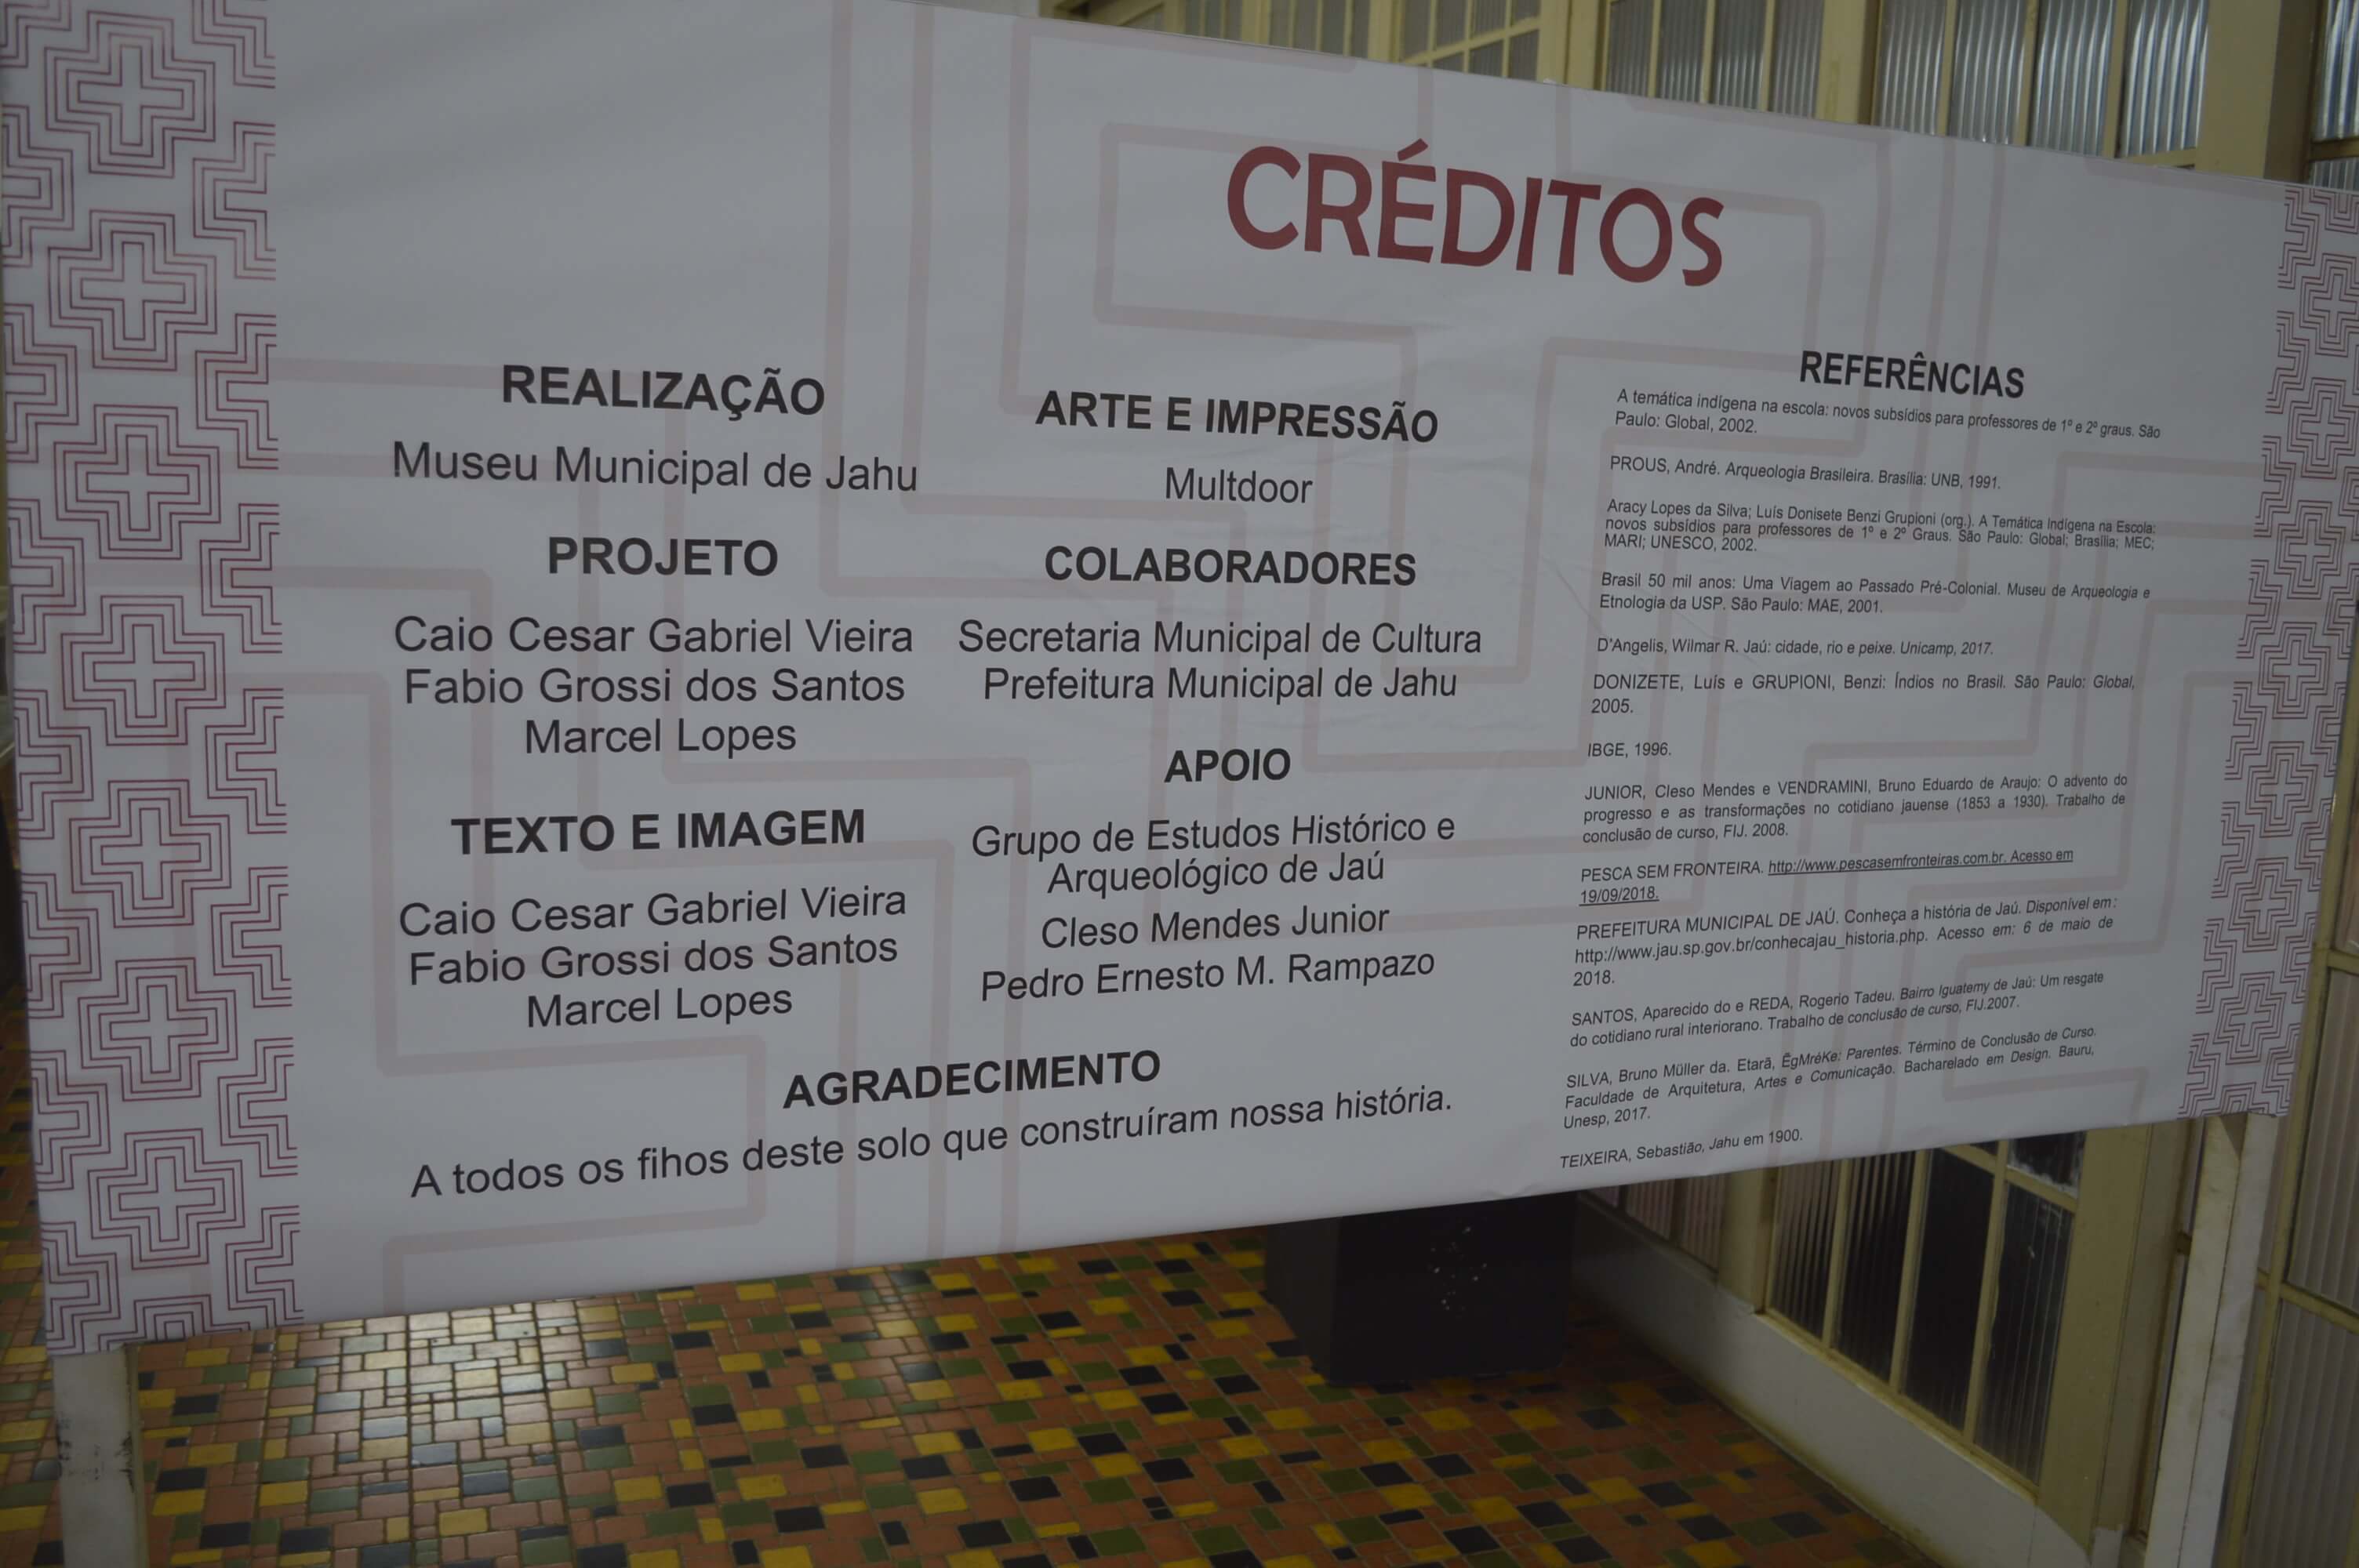 CRÉDITOS
REALIZAÇÃO
Museu Municipal de Jahu
PROJETO
Caio Cesar Gabriel Vieira
Fabio Grossi dos Santos
Marcel Lopes
TEXTO E IMAGEM
Caio Cesar Gabriel Vieira
Fabio Grossi dos Santos
Marcel Lopes
ARTE E IMPRESSÃO
Multdoor
COLABORADORES
Secretaria Municipal de Cultura
Prefeitura Municipal de Jahu
APOIO
Grupo de Estudos Histórico e
Arqueológico de Jaú
Cleso Mendes Junior
Pedro Ernesto M. Rampazo
AGRADECIMENTO
A todos os fihos deste solo que construíram nossa história.
REFERÊNCIAS
A temática indígena na escola: novos subsídios para professores de 1º e 2º graus. São
Paulo: Global, 2002.
PROUS, André. Arqueologia Brasileira. Brasília: UNB, 1991.
Aracy Lopes da Silva; Luís Donisete Benzi Grupioni (org.). A Temática Indígena na Escola:
novos subsídios para professores de 1º e 2º Graus. São Paulo: Global; Brasília; MEC;
MARI; UNESCO, 2002.
Brasil 50 mil anos: Uma Viagem ao Passado Pré-Colonial. Museu de Arqueologia e
Etnologia da USP. São Paulo: MAE, 2001.
D'Angelis, Wilmar R. Jaú: cidade, rio e peixe. Unicamp, 2017.
DONIZETE, Luís e GRUPIONI, Benzi: Índios no Brasil. São Paulo: Global,
2005.
IBGE, 1996.
JUNIOR, Cleso Mendes e VENDRAMINI, Bruno Eduardo de Araujo: O advento do
progresso e as transformações no cotidiano jauense (1853 a 1930). Trabalho de
conclusão de curso, FIJ. 2008.
PESCA SEM FRONTEIRA. http://www.pescasemfronteiras.com.br. Acesso em
19/09/2018.
PREFEITURA MUNICIPAL DE JAÚ. Conheça a história de Jaú. Disponível em:
http://www.jau.sp.gov.br/conhecajau_historia.php. Acesso em: 6 de maio de
2018.
SANTOS, Aparecido do e REDA, Rogerio Tadeu. Bairro Iguatemy de Jaú: Um resgate
do cotidiano rural interiorano. Trabalho de conclusão de curso, FIJ.2007.
SILVA, Bruno Müller da. Etarã, ẼgMréKe: Parentes. Término de Conclusão de Curso.
Faculdade de Arquitetura, Artes e Comunicação. Bacharelado em Design. Bauru,
Unesp, 2017.
TEIXEIRA, Sebastião, Jahu em 1900.